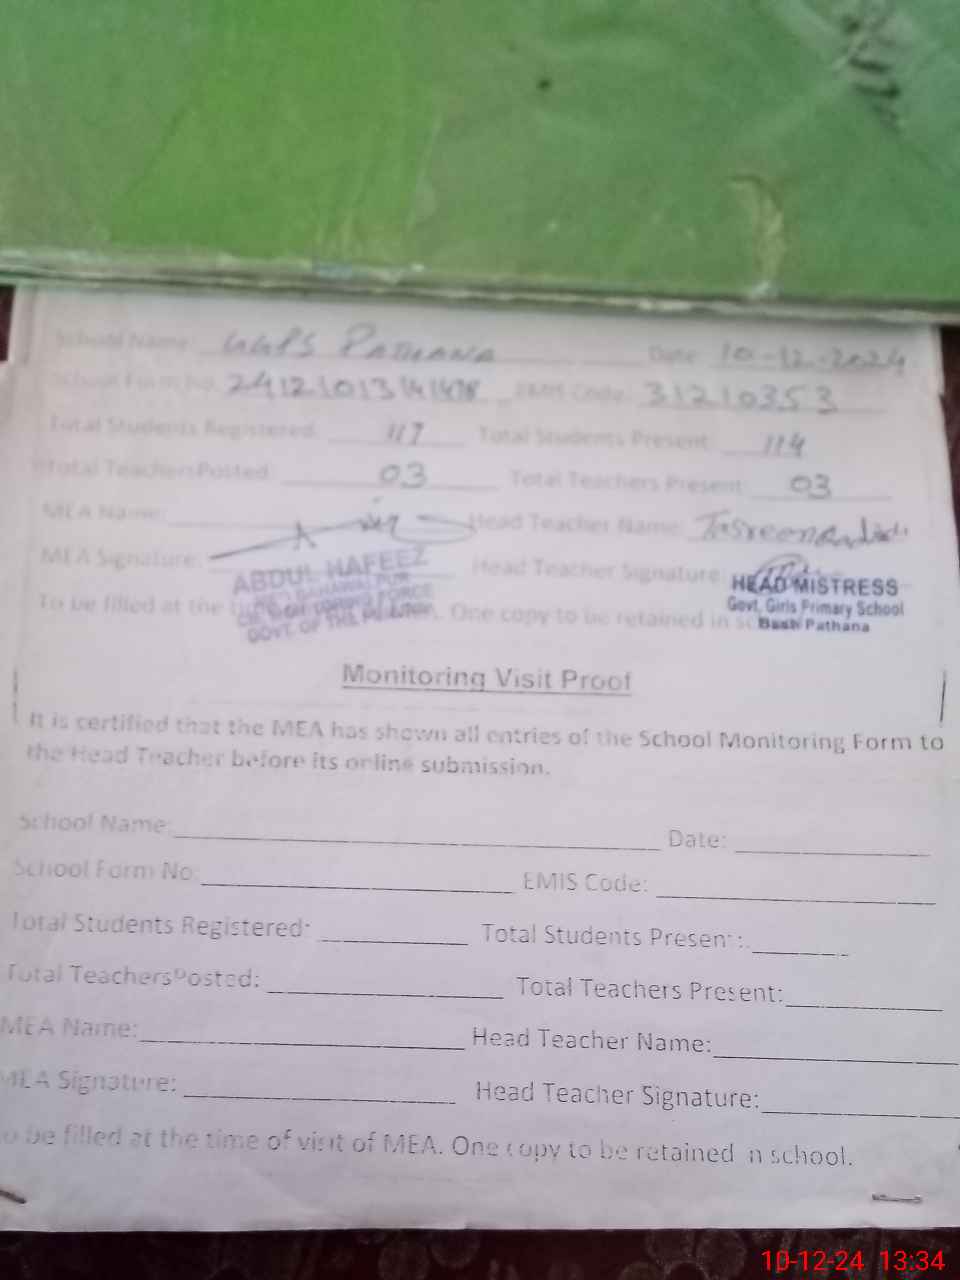 School Name: GGPS PATHANA Date: 10-12-2024
School Form No. EMIS Code: 31210353
Total Students Registered: 117 Total Students Present: 114
Total TeachersPosted: 03 Total Teachers Present: 03
MEA Name: Head Teacher Name:
MEA Signature: Head Teacher Signature:
ABDUL HAFEEZ
GOVT. OF THE PUNJAB
HEAD MISTRESS
Govt. Girls Primary School
Pathana
To be filled at the One copy to be retained in
Monitoring Visit Proof
It is certified that the MEA has shown all entries of the School Monitoring Form to
the Head Teacher before its online submission.
School Name: Date:
School Form No: EMIS Code:
Total Students Registered: Total Students Present:
Total TeachersPosted: Total Teachers Present:
MEA Name: Head Teacher Name:
MEA Signature: Head Teacher Signature:
To be filled at the time of visit of MEA. One copy to be retained in school.
10-12-24 13:34